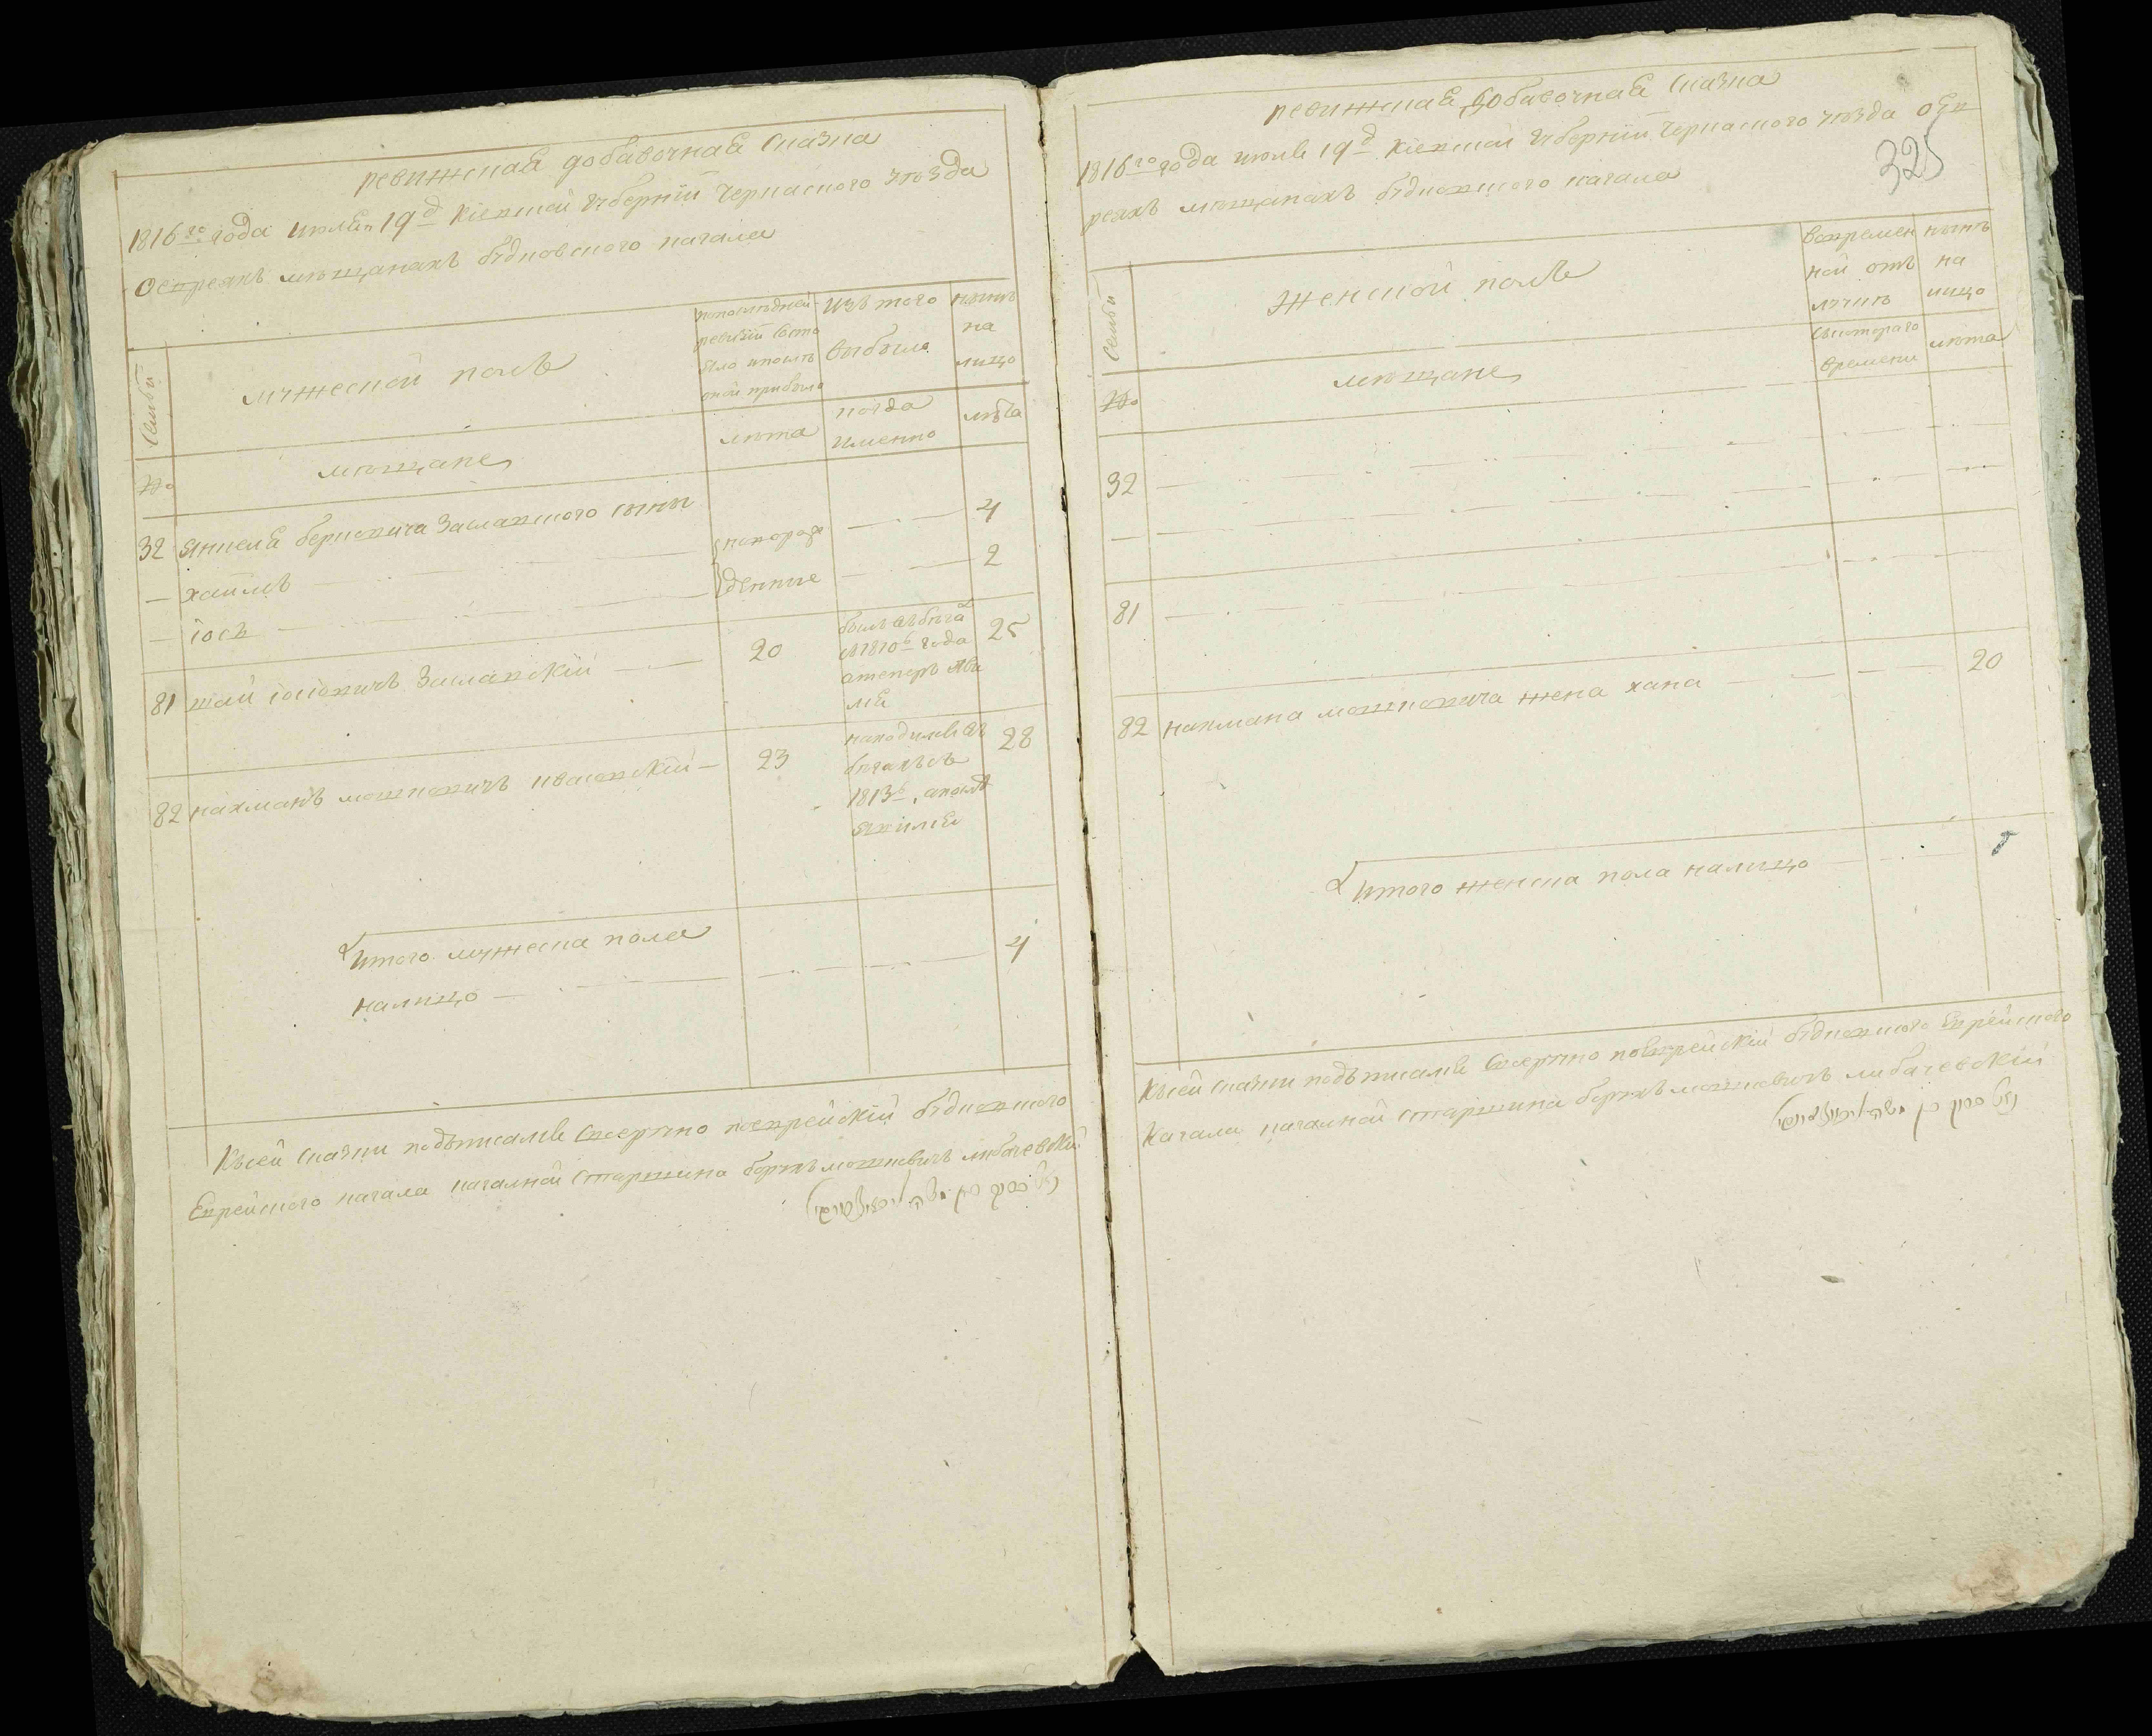 ревижская добавочная сказка
1816го года июля 19д Кіевской губерніи Черкаского уѣзда
О евреяхъ мѣщанахъ бѣдковского кагала
Семьи
мужеской полъ
попослѣдней
ревизіи состо
яло ипослѣ
оной прибыло
Изъ того
выбыло
нынѣ
на
лицо
№
мѣщане
лѣта
когда
именно
лѣта
32 Янкеля берковича Заславского сыны
— хаимъ — новорож — 4
— іось — денные — 2
81 шаи іосіовичъ Заславскій — 20
былъ въ бѣга
съ 1810 года
атеперъ яви
лся
25
82 нахманъ мошковичъ ивасовскій — 23
находилсь въ
бѣгахъ съ
1813, апослѣ
явился
28
Итого мужеска пола
налицо — 4
Къ сей сказки подъписался Смертно поеврейскій бѣдковского
Еврейского кагала кагалной старшина беркъ мошковичъ любачевскій
ревижская добавочная сказка
1816го года июля 19д Кіевской губерніи Черкаского уѣзда о ев
325
реяхъ мѣщанахъ бѣдковского кагала
Семьи
Женской полъ
вовремен
ной отъ
лучкѣ
нынѣ
на
лицо
№
мѣщане
съкотораго
времени
лѣта
32 —
—
81 —
82 нахмана мошковича жена хана — 20
Итого женска пола налицо — 1
Къ сей сказки подъписался Смертно поеврейскій бѣдковского Еврейского
Кагала кагалной старшина беркъ мошковичъ любачевскій